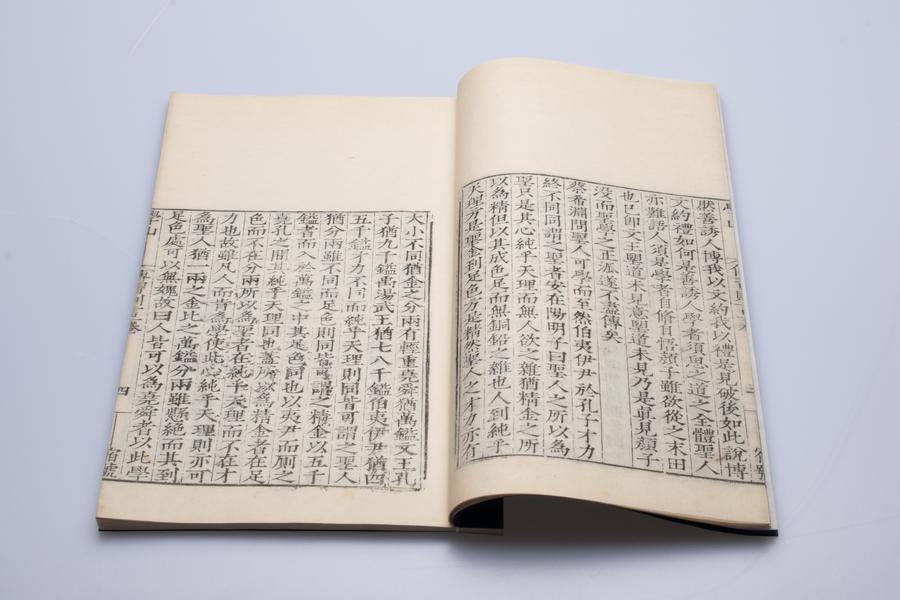 厭善誘人博我以文約我以禮是見破後如此說博
文約禮如何是善誘人學者須思之道之全體聖人
亦難語人須是學者自脩自悟顏子雖欲從之末由
也已即文王望道未見意望道未見乃是真見顏子
沒而聖學之正派遂不盡傳矣
蔡希淵問聖人可學而至然伯夷伊尹於孔子才力
終不同同謂之聖者安在陽明子曰聖人之所以為
聖只是其心純乎天理而無人欲之雜猶精金之所
以為精但以其成色足而無銅鉛之雜也人到純乎
天理方是聖金到足色方是精然聖人之才力亦有
大小不同猶金之分兩有輕重堯舜猶萬鎰文王孔
子猶九千鎰禹湯武王猶七八千鎰伯夷伊尹猶四
五千鎰才力不同而純乎天理則同皆可謂之聖人
猶分兩雖不同而足色則同皆可謂之精金以五千
鎰者而入於萬鎰之中其足色同也以夷尹而厠之
堯孔之間其純乎天理同也蓋所以為精金者在足
色而不在分兩所以為聖者在純乎天理而不在才
力也故雖凡人而肯為學使此心純乎天理則亦可
為聖人猶一兩之金比之萬鎰分兩雖懸絕而其到
足色處可以無媿故曰人皆可以為堯舜者以此學
四